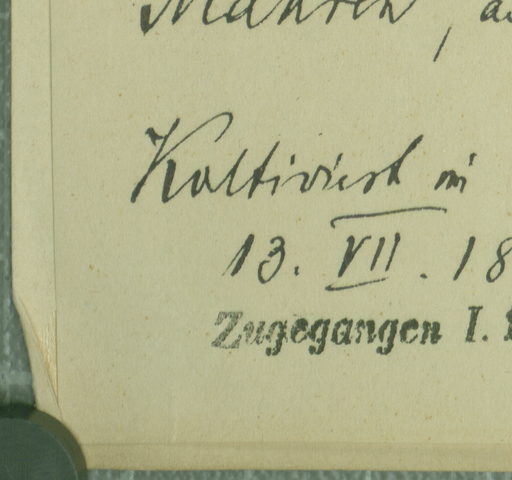 Mähren, a
Kultiviert in
13. VII. 18
Zugegangen I.